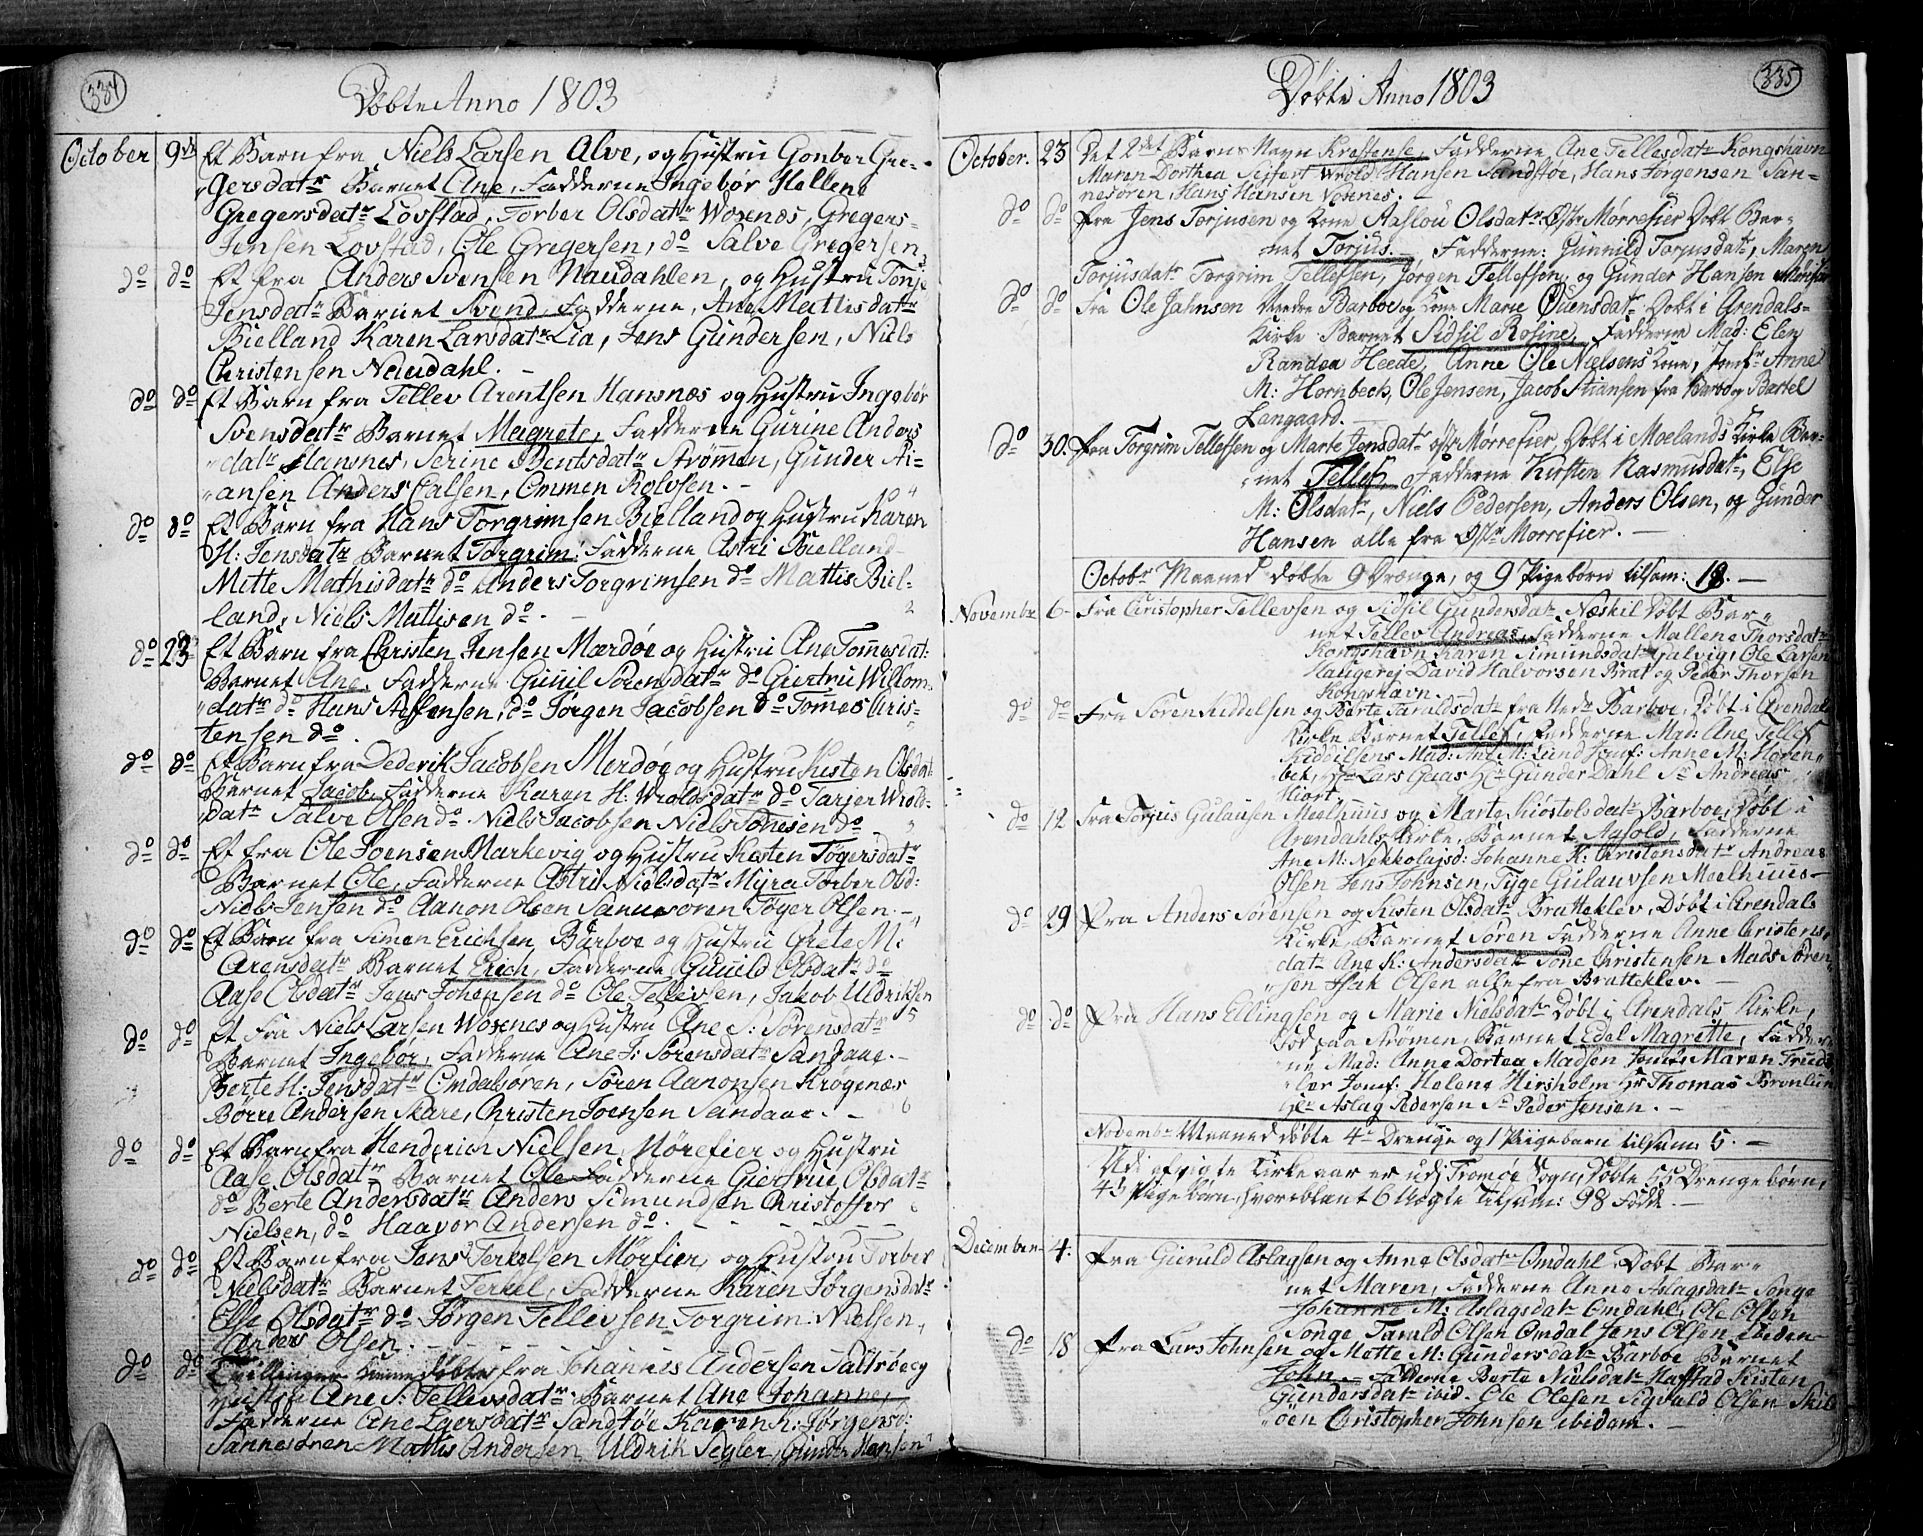 334
Døbte Anno 1803
October 9de Et Barn fra Niels Larsen Alve, og Hustru Gonber Gre-
gersdatr Barnet Ane, Fadderne Ingebør Hellene
Gregersdatr Lovstad, Torber Olsdatr Woxenæs, Gregers
Jensen Lovstad, Ole Gregersen, do Salve Gregersen
do do Et fra Anders Svensen Naudahlen, og Hustru Tonje
Jensdatr Barnet Svend, Fadderne, Ane Mattisdatr
Bielland Karen Larsdatr Lia, Jens Gundersen, Niels
Christensen Neudahl.
do do Et Barn fra Tellev Arentsen Hansnæs og Hustru Ingebør
Svensdatr Barnet Magrete, Fadderne Gurine Anders
datr Hansnes, Serine Bentsdatr Strømen, Gunder Ai-
ansen Anders Calsen, Ommen Rolvsen.
do do Et Barn fra Hans Torgrimsen Bielland og Hustru Karen
H: Jensdatr Barnet Torgrim. Fadderne Astri Bielland
Mette Mathisdatr do Anders Torgrimsen do Mattis Biel-
land, Niels Mattisen do.
do 23 Et Barn fra Christen Jensen Mærdøe og Hustru Ane Tommesdat:
Barnet Ane, Fadderne Gunil Sørensdatr do Giertru Willom
datr do Hans Steffensen, do Jørgen Jacobsen do Tomes Chris-
tensen do.
do do Et Barn fra Dederik Jacobsen Merdøe og Hustru Kisten Olsdat
Barnet Jacob, Fadderne Karen H: Wroldsdatr do Tarjer Wrold-
datr Salve Olsen do Niels Jacobsen Niels Tønesen do
do do Et fra Ole Joensen Markevig og Hustru Kesten Tøgersdatr
Barnet Ole, Fadderne Astri Nielsdatr Myra Torber Olsd:
Niels Jensen do Aanon Olsen Sannesøren Tøger Olsen.
do do Et Barn fra Simen Erichsen Barboe og Hustru Grete M:
Arensdatr Barnet Erich, Fadderne Gunild Olsdatr do
Aase Olsdatr Jens Johensen do Ole Tellevsen, Jakob Uldriksen
do do Et Fra Niels Larsen Woxenes og Hustru Ane S: Sørensdatr
Barnet Ingebør, Fadderne Ane J: Sørensdatr Sandaae.
Berte H: Jensdatr Omdalsøren, Søren Aanonsen Krøgenæs
Børre Andersen Skare, Christen Joensen Sandaae.
do do Et Barn fra Henderich Nielsen, Mørefier og Hustru
Aase Olsdatr Barnet Ole Fadderne Giertrue Olsdatr
do Berte Andersdatr Anders Simundsen Christoffer
Nielsen, do Haavor Andersen do.
do do Et Barn fra Jens Terkelsen Mørfier, og Hustru Torber
Nielsdatr Barnet Terkel, Fadderne Karen Jørgensdatr
Else Olsdatr do Jørgen Tellevsen Torgrim Nielsen,
Anders Olsen.
do do Tvillinger fra Johannes Andersen Saltrøe og
Hustrue Ane S: Tellevsdatr Barnet Ane Johanne,
Fadderne Ane Egersdatr Sandtøe Karen K: Jørgensd:
Sannesøren Mattis Andersen, Uldrik Segler, Gunder Hansen
335
Døbte Anno 1803
October. 23 Det 2det Barns Navn Krestense, Fadderne Ane Tellesdatr Kongshavn
Maren Dorthea Seifert Wrold Hansen Sandtøe, Hans Jørgensen San-
nesøren, Hans Hansen Voxnes.
do do Fra Jens Torjusen og Kone Aaslou Olsdatr Østr Mørrefier Døbt Bar-
net Torjus, Fadderne: Gunnild Torjusdatr, Maren
Torjusdatr Torgrim Tellefsen, Jørgen Tellefsen, og Gunder Hansen
do do Fra Ole Jahnsen Nedre Barboe og Kone Marie Ouensdatr Døbt i Arendals-
Kirke Barnet Sidsil Rosine, Fadderne Mad: Elen
Randea Heede, Anne Ole Nielsens Kone, Jomfr Anne
M: Hornbech, Ole Jensen, Jacob Stiansen fra Barbo og Bertel
Langaard.
do 30. Fra Torgrim Tellefsen og Marte Jensdatr østr Mørrefier, Døbt i Moelands Kirke Bar-
net Tellef, Fadderne Kirsten Rasmusdatr, Else
M: Olsdatr, Niels Pedersen, Anders Olsen, og Gunder
Hansen alle fra Østr Morrefier.
Octobr Maaned døbte 9 Drænge, og 9 Pigebørn tilsam: 18.
Novembr 6 Fra Christopher Tellevsen og Sidsil Gundersdatr Næskil Døbt Bar-
net Tellev Andreas, Fadderne Mallene Thorsdatr
Kongshavn Karen Simunsdatr Galvig, Ole Larsen
Haugerej David Halvorsen Brat og Peder Thorsen
Kongshavn.
do do Fra Søren Kiddelsen og Berte Taraldsdatr fra Nedr Barboe, Døbt i Arendals
Kirke Barnet Tellef, Fadderne Mad: Ane Tellef
Kiddilsens Mad: Ane M: Lund Jomf: Anne M: Horen-
bek, Hr Lars Gaas Hr Gunder Dahl Sr Andreas
Hiort.
do 12 Fra Torjus Gulaufsen Meelhuus og Marte Kiostolsdatr Barboe, Døbt i
Arendahls Kirke, Barnet Aasold, Fadderne
Ane M: Nekkolajsd: Johanne K: Christensdatr Andreas
Olsen Jens Johnsen, Tyge Gulauvsen Meelhuus
do 29 Fra Anders Sørensen og Kisten Olsdatr Bratteklev, Døbt i Arendals
Kirke, Barnet Søren Fadderne Anne Cristens-
datr Ane K: Andersdatr Tone Christensen Mads Søren-
sen Isak Olsen alle fra Bratteklev.
do do Fra Hans Ellingsen og Marie Nielsdatr Døbt i Arendals Kirke,
Fød paa Strømen, Barnet Edel Magrette, Fadder-
ne Mad: Anne Dortea Madsen Jomfr Maren Truds
Jomf: Helene Hirsholm Hr Thomas Bronlun
Hr Aslag Pedersen Sr Peder Jensen.
Novembr Maaned døbte 4 Drenge og 1 Pigebarn tilsam 5.
Udi afvigte Kirkeaar er udj Tromøe Sogn, Døbte 55 Drengebørn,
43 Pigebørn, hvoriblant 6 Uegte Tilsam: 98 Fødde.
December 4. Fra Giøruld Aslagsen og Anne Olsdatr Omdahl, Døbt Bar-
net Maren, Fadderne Anne Aslagsdatr Songe
Johanne M: Aslagsdatr Omdahl, Ole Olsen
Songe Tarald Olsen Omdal Jens Olsen ibiden
do 18 Fra Lars Johnsen og Mette M: Gundersdatr Barboe Barnet
John Fadderne Berte Nielsdatr Haftad Kisten
Gundersdatr ibid: Ole Olesen Sigvald Olsen Skils
øen Christopher Johnsen ibidem.